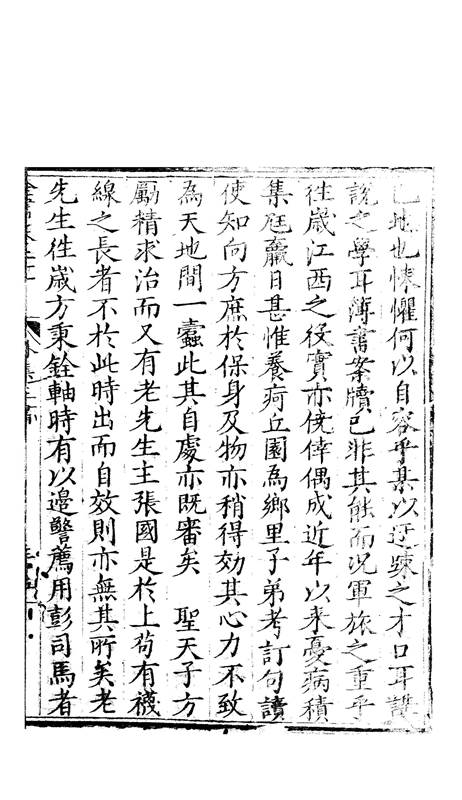 已地也悚懼何以自容乎某以迂疎之才口耳講
說之學耳簿書案牘已非其能而況軍旅之重乎
徃歲江西之役實亦僥倖偶成近年以來憂病積
集尫羸日甚惟養疴丘園為鄉里子弟考訂句讀
使知向方庶於保身及物亦稍得効其心力不致
為天地間一蠹此其自處亦既審矣 聖天子方
勵精求治而又有老先生主張國是於上茍有襪
線之長者不於此時出而自效則亦無其所矣老
先生徃歲方秉銓軸時有以邊警薦用彭司馬者